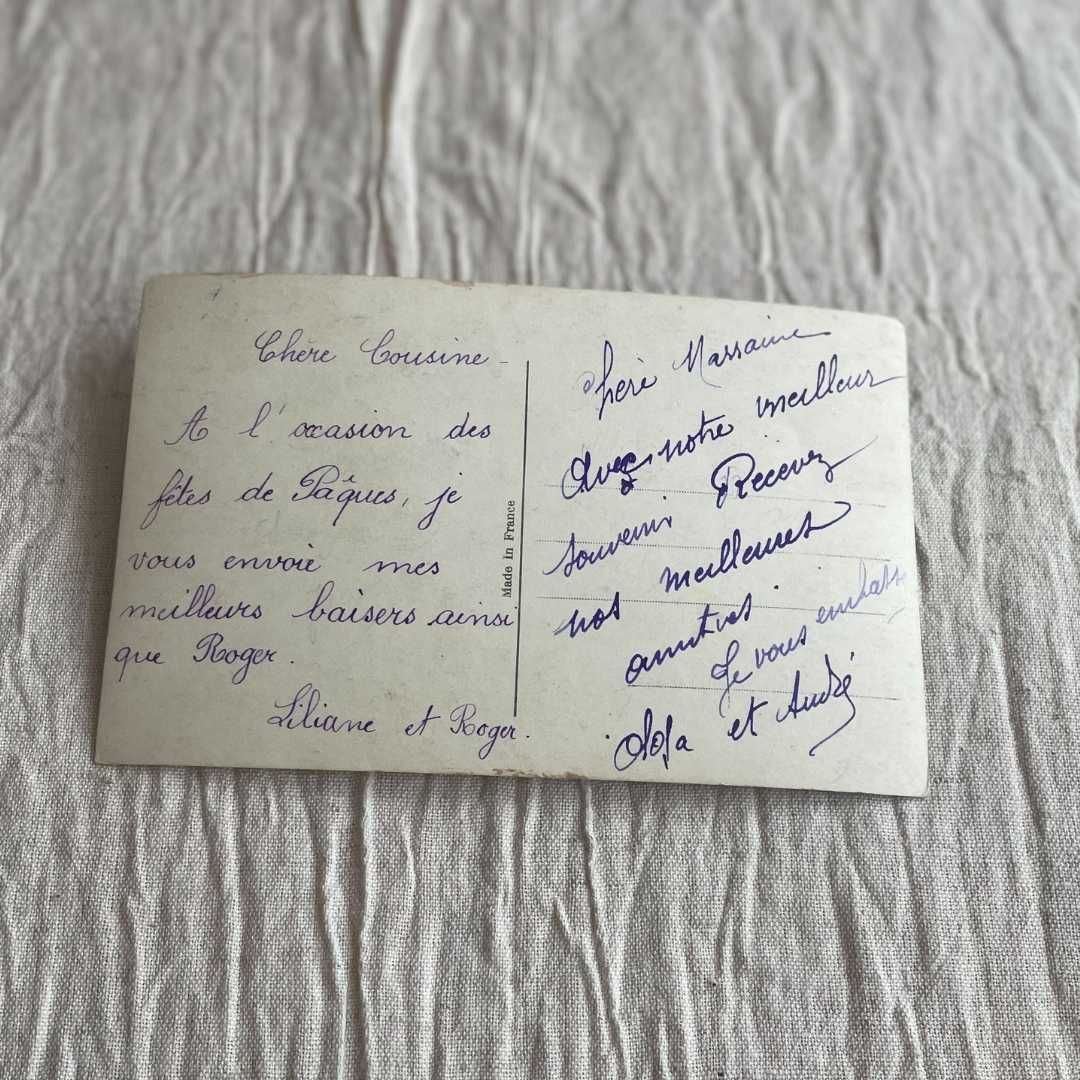 Chère Cousine -
A l'occasion des
fêtes de Pâques, je
vous envoie mes
meilleurs baisers ainsi
que Roger.
Liliane et Roger.
Made in France
chère
Avec notre meilleur
souvenir Recevez
nos meilleures
amitiés
Je vous embrass
et André